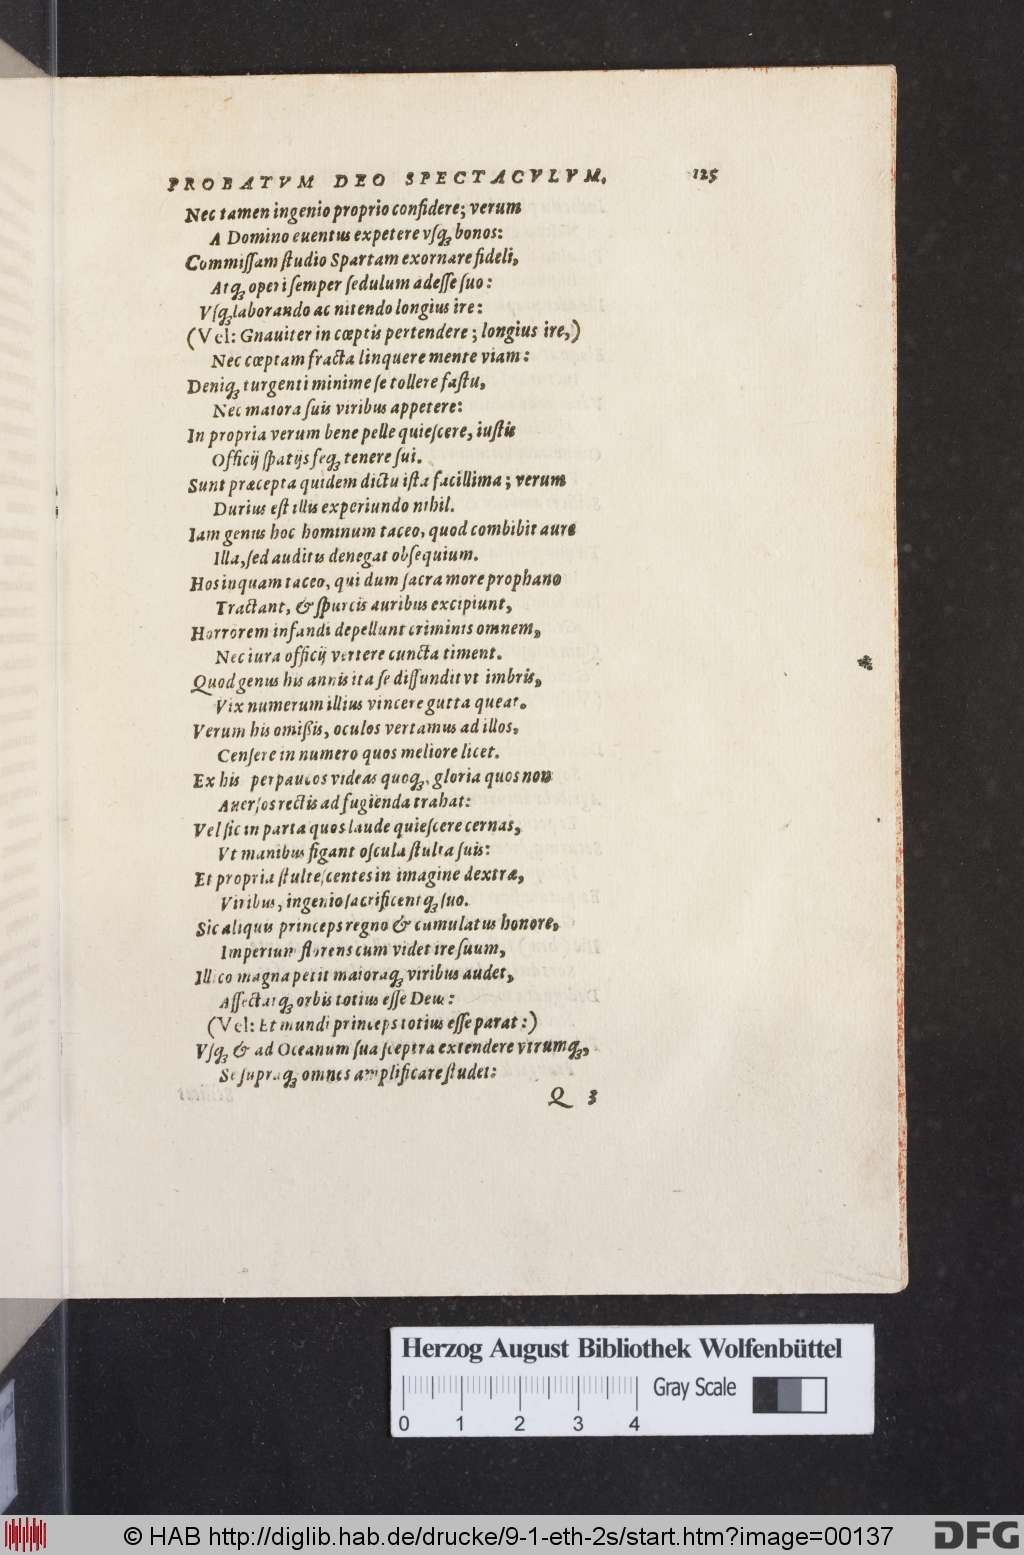 PROBATVM DEO SPECTACVLVM. 125
Nec tamen ingenio proprio confidere; verum
A Domino euentus expetere vſq́ꝫ bonos:
Commiſſam ſtudio Spartam exornare fideli,
Atqꝫ operi ſemper ſedulum adeſſe ſuo:
Vſqꝫ laborando ac nitendo longius ire:
(Vel: Gnauiter in cœptis pertendere; longius ire,)
Nec cœptam fracta linquere mente viam:
Deniqꝫ turgenti minime ſe tollere faſtu,
Nec maiora ſuis viribus appetere:
In propria verum bene pelle quieſcere, iuſtis
Officij ſpatijs ſeqꝫ tenere ſui.
Sunt præcepta quidem dictu iſta facillima; verum
Durius eſt illis experiundo nihil.
Iam genus hoc hominum taceo, quod combibit aure
Illa, ſed auditis denegat obſequium.
Hos inquam taceo, qui dum ſacra more prophano
Tractant, & ſpurcis auribus excipiunt,
Horrorem infandi depellunt criminis omnem,
Nec iura officij vertere cuncta timent.
Quod genus his annis ita ſe diffundit vt imbris,
Vix numerum illius vincere gutta queat.
Verum his omißis, oculos vertamus ad illos,
Cenſere in numero quos meliore licet.
Ex his perpaucos videas quoqꝫ, gloria quos non
Auerſos rectis ad fugienda trahat:
Vel ſic in parta quos laude quieſcere cernas,
Vt manibus figant oſcula ſtulta ſuis:
Et propria ſtulteſcentes in imagine dextræ,
Viribus, ingenio ſacrificentqꝫ ſuo.
Sic aliquis princeps regno & cumulatus honore,
Imperium florens cum videt ire ſuum,
Illico magna petit maioraqꝫ viribus audet,
Affectatqꝫ orbis totius eſſe Deus:
(Vel: Et mundi princeps totius eſſe parat:)
Vſqꝫ & ad Oceanum ſua ſceptra extendere vtrumqꝫ,
Se ſupraqꝫ omnes amplificare ſtudet:
Q 3
Herzog August Bibliothek Wolfenbüttel
Gray Scale
0 1 2 3 4
© HAB http://diglib.hab.de/drucke/9-1-eth-2s/start.htm?image=00137
DFG